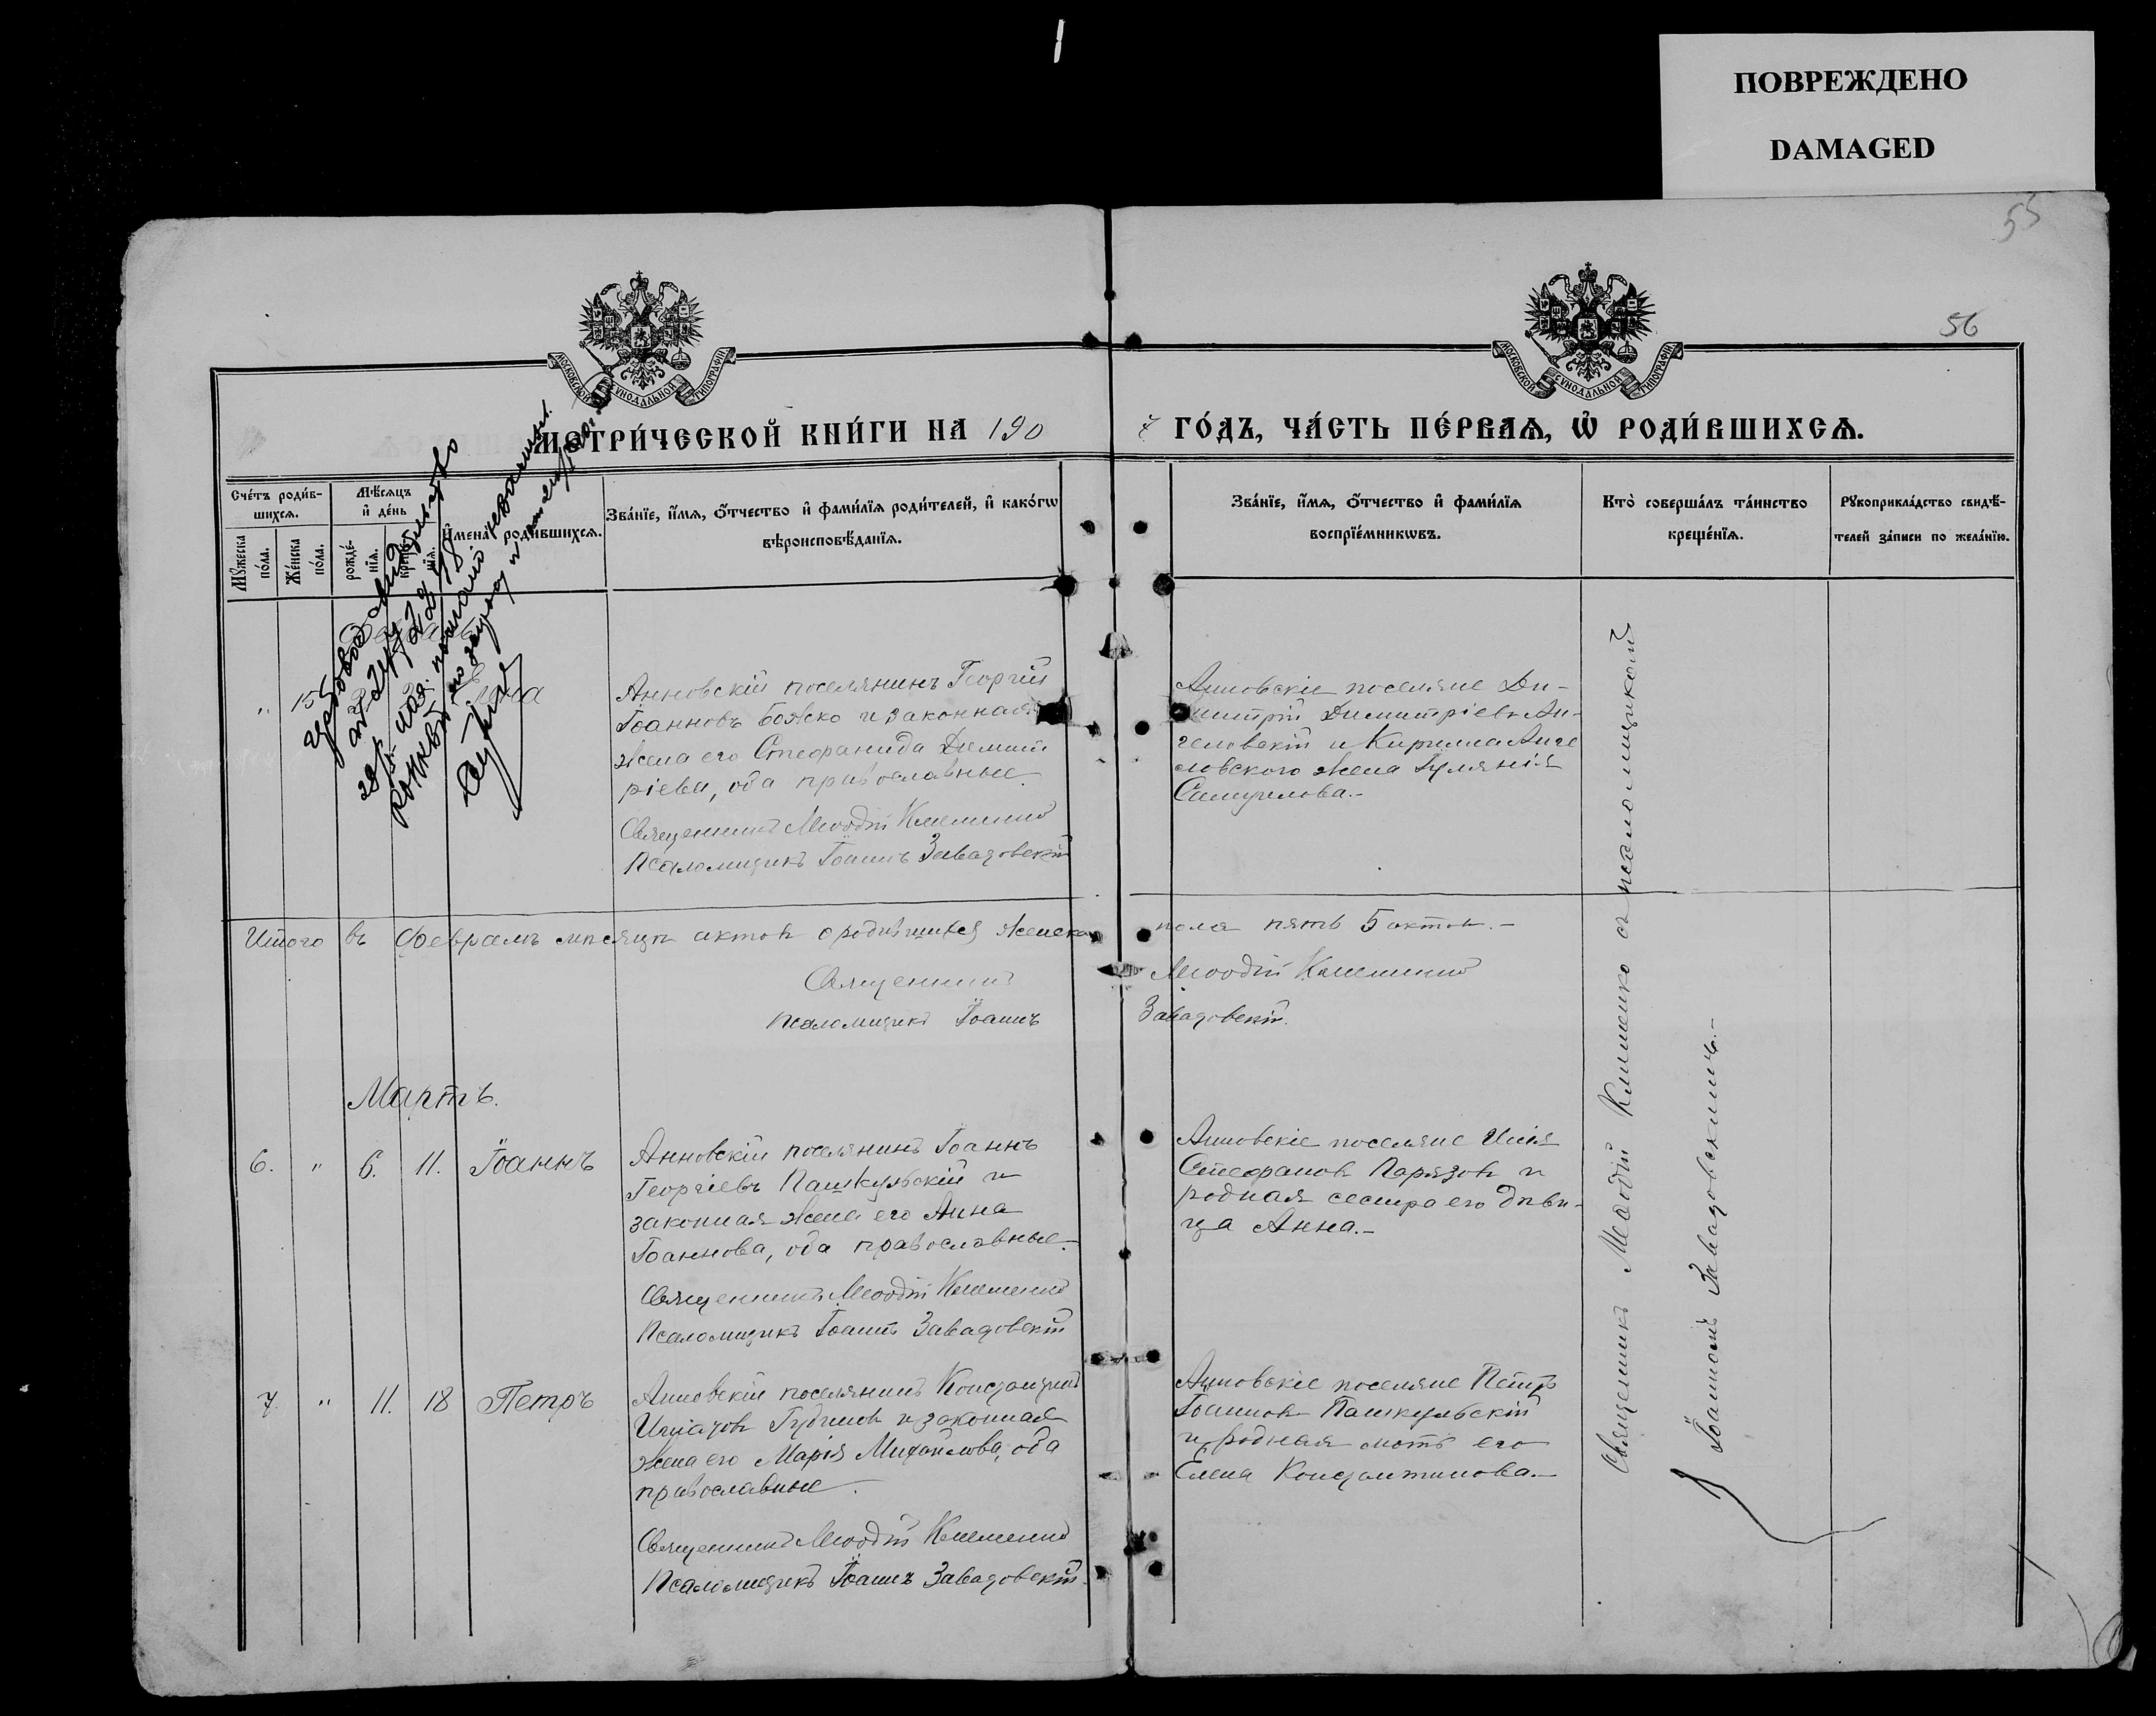 ПОВРЕЖДЕНО
DAMAGED
55
56
МОСКОВСКОЙ СѴНОДАЛЬНОЙ ТИПОГРАФІИ
МОСКОВСКОЙ СѴНОДАЛЬНОЙ ТИПОГРАФІИ
МЕТРИ́ЧЕСКОЙ КНИ́ГИ НА 190
7 ГО́ДЪ, ЧА́СТЬ ПЕ́РВАѦ, Ѡ҆ РОДИ́ВШИХСѦ.
Сче́тъ роди́в-
шихсѧ.
Мѣ́сѧцъ
и҆ де́нь
Мꙋ́жеска по́ла.
Же́нска по́ла.
рожде́-
нїѧ.
креще́-
нїѧ.
И҆мена̀ роди́вшихсѧ.
Зва́нїе, и҆́мѧ, ѻ҆́тчество и҆ фами́лїѧ роди́телей, и҆ како́гѡ
вѣроисповѣ́данїѧ.
Зва́нїе, и҆́мѧ, ѻ҆́тчество и҆ фами́лїѧ
воспрїе́мникѡвъ.
Кто̀ соверша́лъ та́инство
креще́нїѧ.
Рꙋкоприкла́дство свидѣ́-
телей за́писи по жела́нїю.
" 15
Анновскій поселянинъ Георгій
Іоанновъ Божко и законная
жена его Стефанида Димит
ріева, оба православные.
Священникъ Меѳодій Клименко
Псаломщикъ Іоаннъ Завадовскій
Анновскіе поселяне Ди-
митрій Димитріевъ Ан-
геловскій и Кирилла Анге
ловского жена Іулянія
Самуилова.-
Итого въ Февралѣ мѣсяцѣ актовъ о родившихся женска пола пять 5 актовъ.-
Священникъ Меѳодій Клименко
Псаломщикъ Іоаннъ Завадовскій.
Мартъ.
6. " 6. 11. Іоаннъ
Анновскій поселянинъ Іоаннъ
Георгіевъ Пашкульскій и
законная жена его Анна
Іоаннова, оба православные.-
Священникъ Меѳодій Клименко
Псаломщикъ Іоаннъ Завадовскій
Анновскіе поселяне Илія
Стефановъ Парязовъ и
родная сестра его дѣви-
ца Анна.-
7. " 11. 18 Петръ
Анновскій поселянинъ Константинъ
Игнатовъ и законная
жена его Марія Михайлова, оба
православные.
Священникъ Меѳодій Клименко
Псаломщикъ Іоаннъ Завадовскій.
Анновскіе поселяне Петръ
Іоанновъ Пашкульскій
и родная мать его
Елена Константинова.-
Священникъ Меѳодій Клименко съ псаломщикомъ
Іоанномъ Завадовскимъ.-